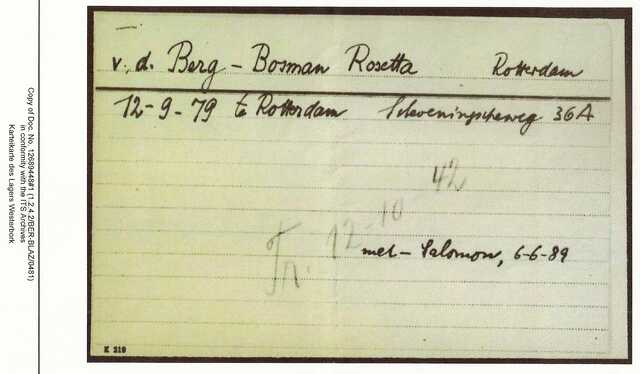 v. d. Berg - Bosman Rosetta Rotterdam
12-9-79 te Rotterdam Scheveningscheweg 36A
Tr. 12-10-42
met - Salomon, 6-6-89
K 210
Copy of Doc. No. 12689448#1 (1.2.4.2/BER-BLAZ/0481)
in conformity with the ITS Archives
Karteikarte des Lagers Westerbork